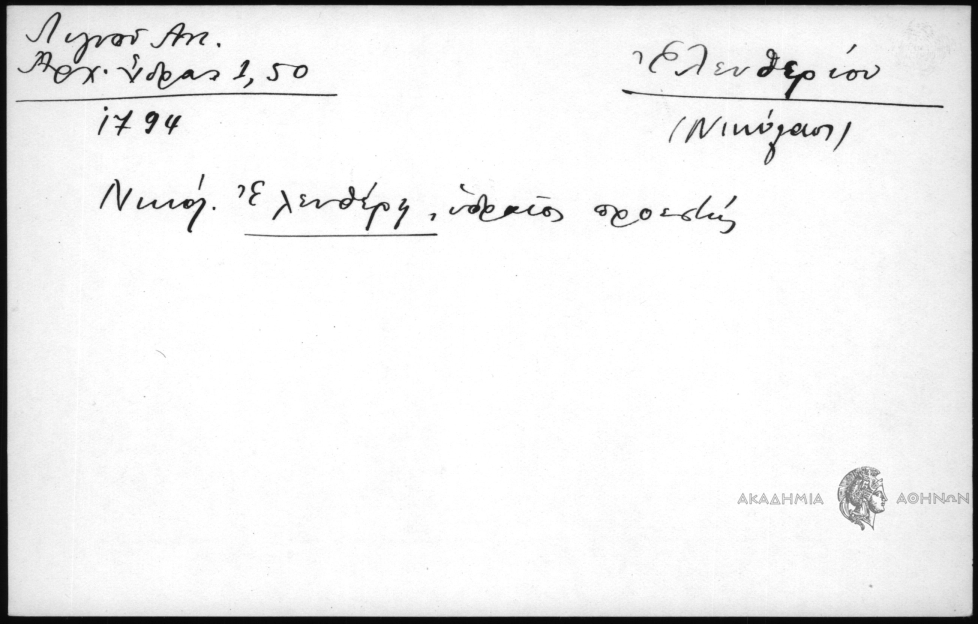 Λιγνοῦ Ἀντ.
Ἀρχ. Ὕδρας 1, 50
1794
Ἐλευθερίου
(Νικόλαος)
Νικόλ. Ἐλευθέρη, ὑδραῖος προεστώς
ΑΚΑΔΗΜΙΑ ΑΘΗΝΩΝ